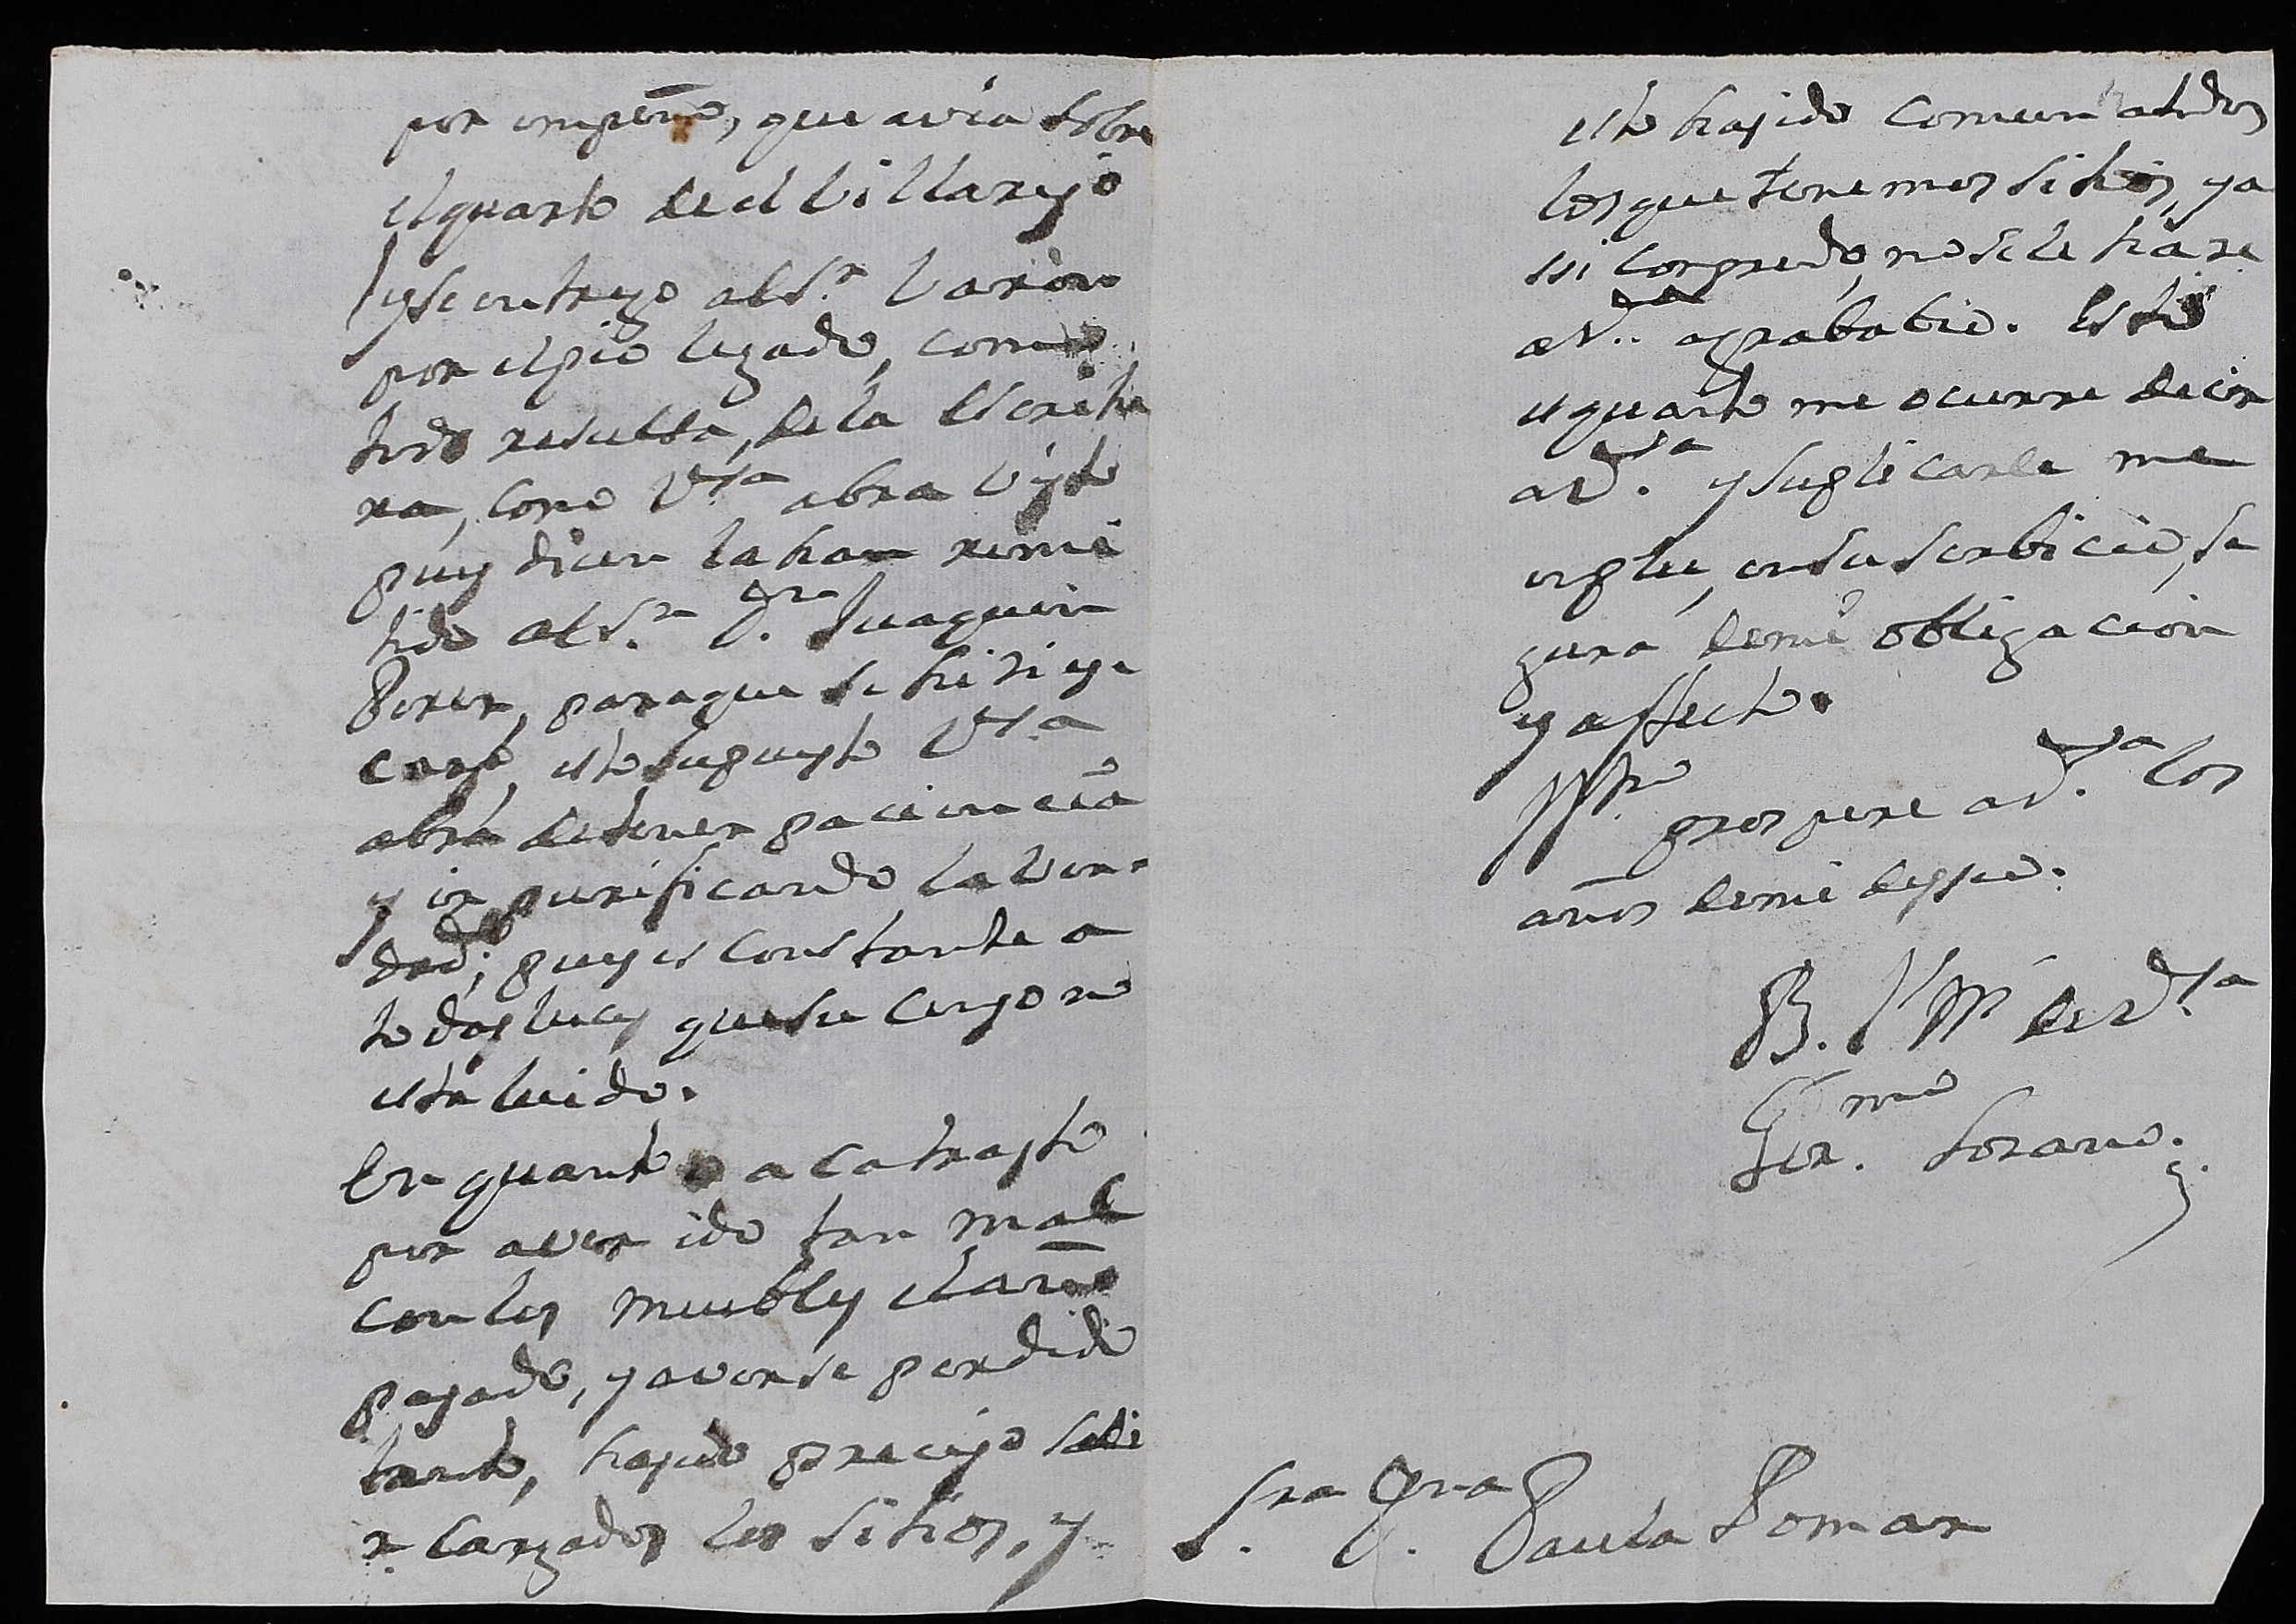 por empeño, que avia sobre
el quarto de el Villarejo
y se entrego al S.r Varon
por el pio legado, como
todo resulta, de la Escritu
ra, como V.sa abra visto
pues dicen la han remi
tido al S.r D.n Juaquin
Ferer, para que satisfaga
este supuesto V.sa
abrá de tener paciencia
y ir purificando la ver
dad; pues es constante a
todas luces que su cargo no
está luido.
En quanto a catrasto
por aver ido tan mal
con los muebles el año
pasado, y averse perdido
tanto, ha sido preciso salir
cargados los sitios, y
esto ha sido comun a todos
los que tenemos sitios, y a
ssi no se le hace
a V.sa agrabio. Esto
es quanto me ocurre decir
a V.sa y suplicarle me
emplee, en su serbicio, se
gura de mi obligacion
y affecto.
prospere a V.sa los
años de mi desseo.
B. l M de V.sa
Ger.mo Lozano.
S.ra D.na Paula Pomar